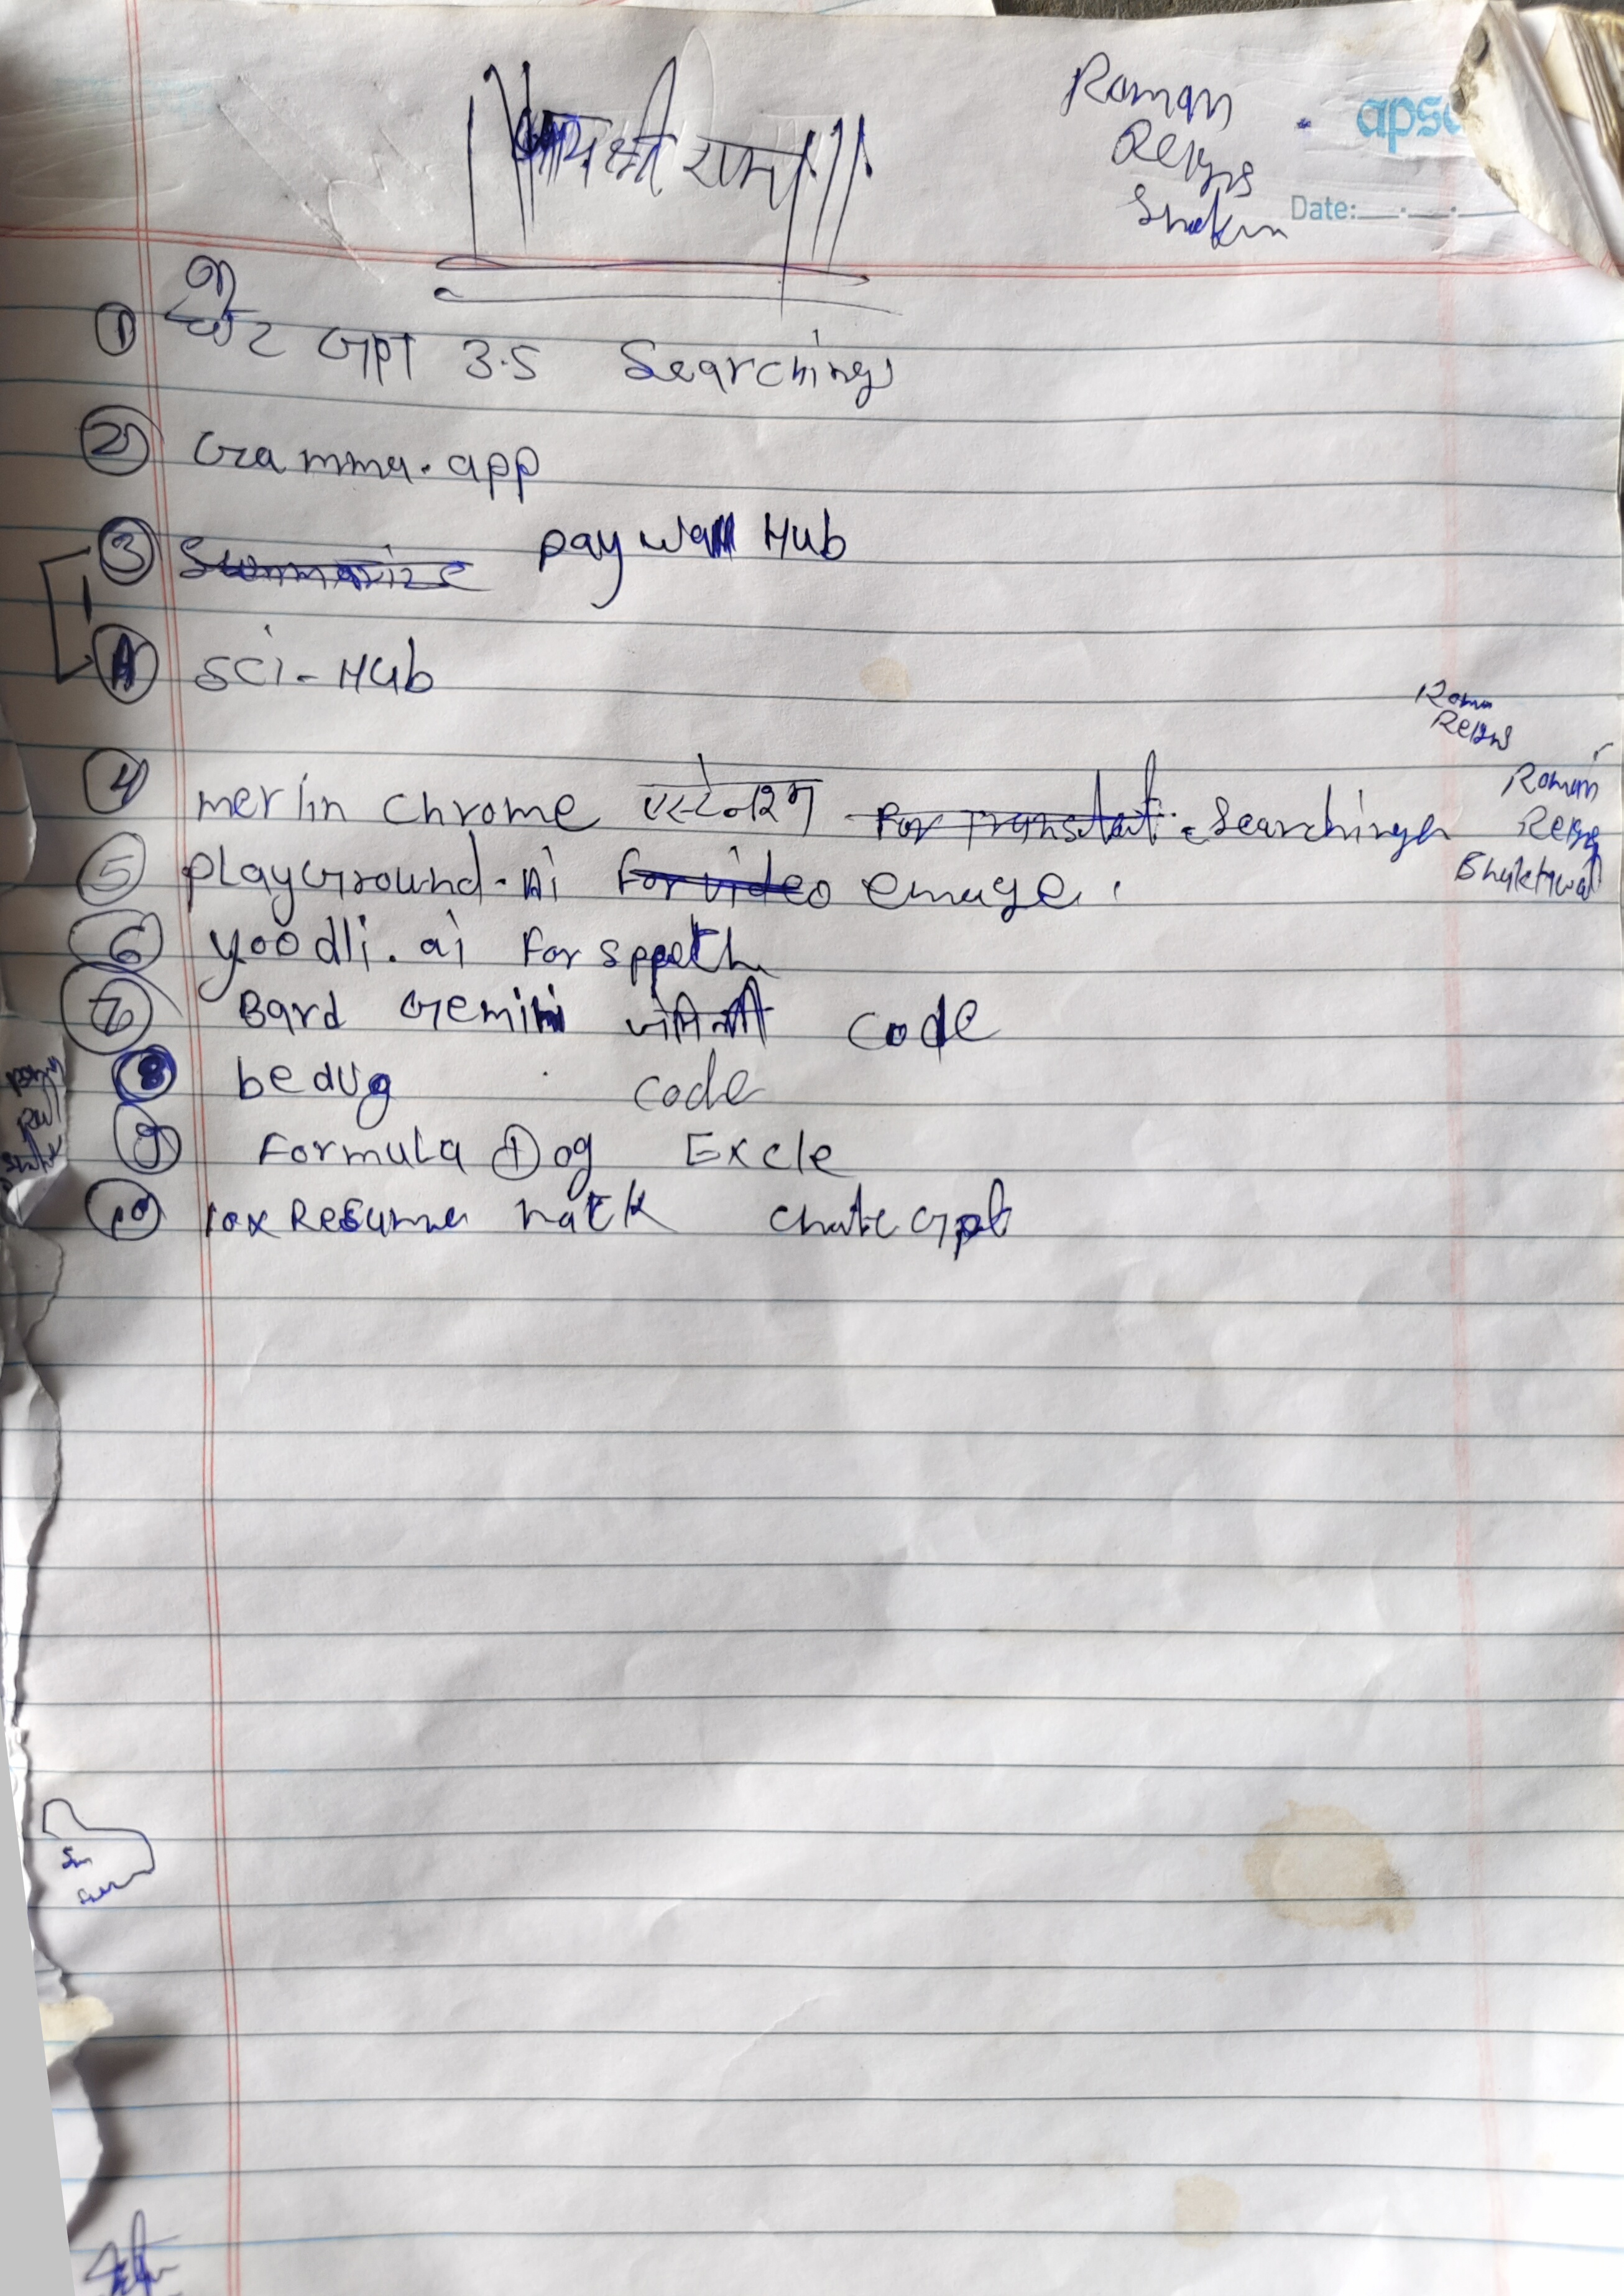 ॥ जय श्री राम ॥
Roman
Reigns
apsa
Date:
① चेट GPT 3.5 Searchings
② Gramma.app
③ Summarize paywall Hub
Ⓐ sci-Hub
Roman
Reigns
④ merlin chrome एस्टेन्शन For Translat Searchings
Roman
Reigns
⑤ playground.Ai for video emage.
⑥ yoodli.ai For
⑦ Bard Gemini code
⑧ bedug code
⑨ Formula Dog Excle
⑩ 10x Resume chate Gpt